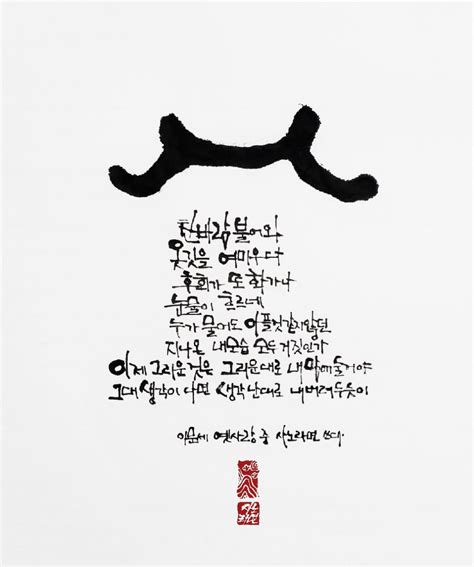 찬바람 불어와
옷깃을 여미우다
후회가 또 화가나
눈물이 흐르네
누가 물어도 아플것같지않던
지나온 내모습 모두 거짓인가
이제 그리운것은 그리운대로 내맘에둘거야
그대 생각이 나면 생각난대로 내버려두듯이
이문세 옛사랑 중 사노라면 쓰다.